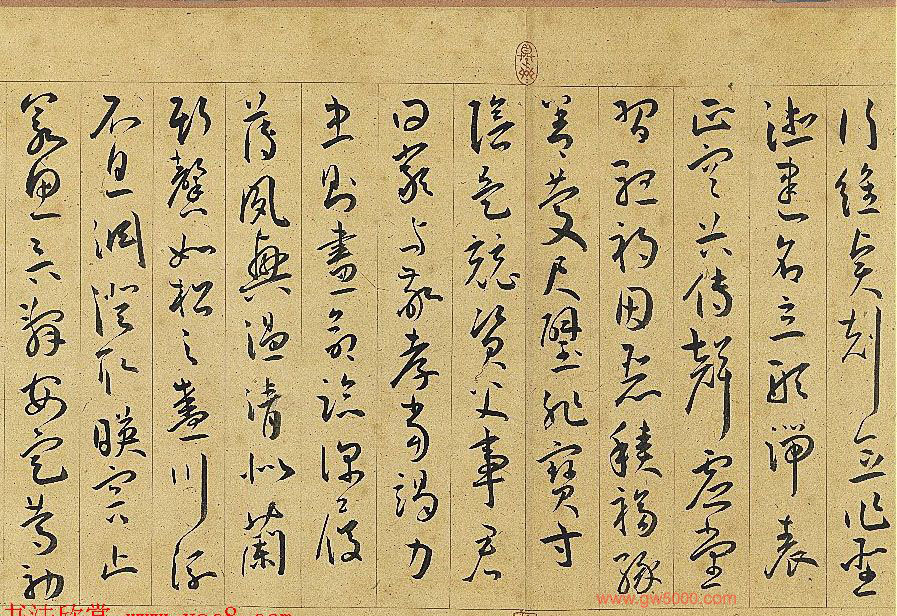 行維賢剋念作聖
德建名立形端表
正空谷傳聲虛堂
習聽禍因惡積福緣
善慶尺璧非寶寸
陰是競資父事君
曰嚴與敬孝當竭力
忠則盡命臨深履
薄夙興溫清似蘭
斯馨如松之盛川流
不息淵澄取暎容止
若思言辭安定篤初
www.gw5000.com